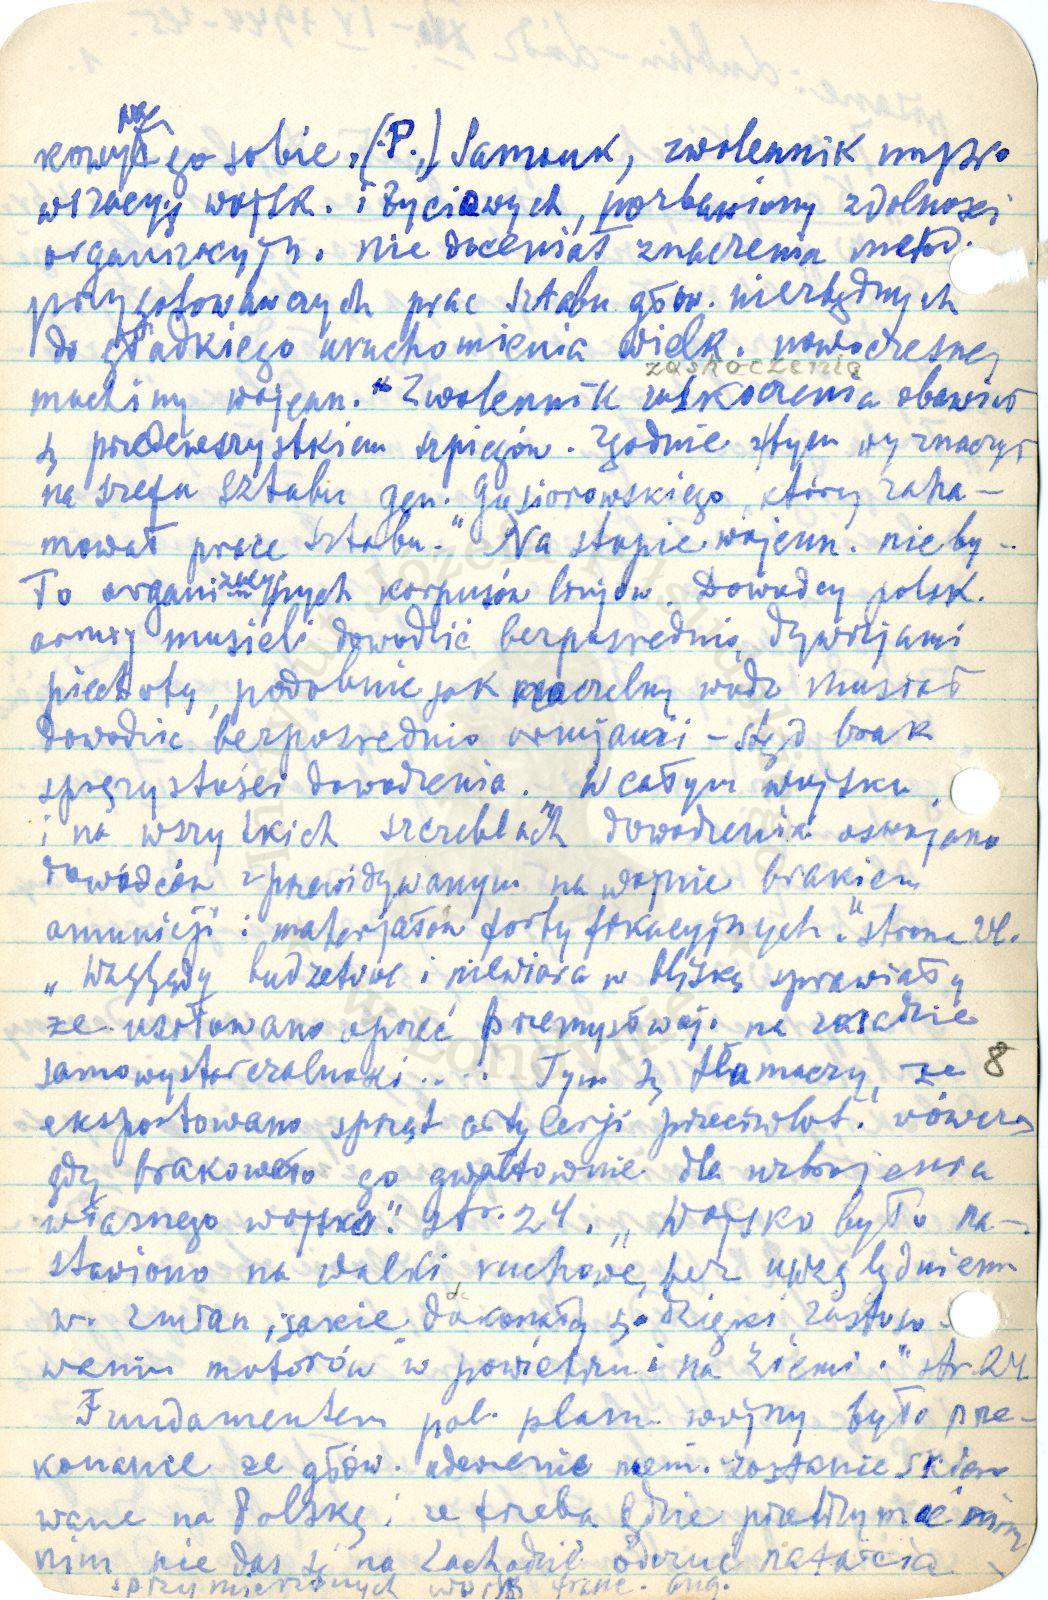 kowych
go sobie. (P.) Samouk, zwolennik impro
wizacyj wojsk. i życiowych, pozbawiony zdolności
organizacyjn. nie doceniał znaczenia metod.
przygotowawczych prac sztabu głów. niezbędnych
do gładkiego uruchomienia wielk. nowoczesnej
zaskoczenia
machiny wojenn." "Zwolennik zaskoczenia obawiał
się przedewszystkiem szpiegów. Zgodnie z tym wyznaczył
na szefa sztabu gen. Gąsiorowskiego, który zaha-
mował prace sztabu." Na stopie wojenn. nie by-
ło organizacyjnych korpusów bojow. Dowódcy polsk.
armij musieli dowodzić bezpośrednio dywizjami
piechoty, podobnie jak naczelny wódz musiał
dowodzić bezpośrednio armjami – stąd brak
sprężystości dowodzenia. W całym wojsku,
i na wszystkich szczeblach dowodzenia oswajano
dowódców z przewidywanym na wojnie brakiem
amunicji i materjałów fortyfikacyjnych." strona 24.
„Względy budżetowe i niewiara w bliską sprawiały
że usiłowano oprzeć przemysł woj. na zasadzie
samowystarczalności.... Tym się tłumaczy, że 8
eksportowano sprzęt artylerji przeciwlot. wówczas
gdy brakowało go gwałtownie dla uzbrojenia
własnego wojska". str. 24. „Wojsko było na-
stawiono na walki ruchowe, bez uwzględnienia
w. zmian, jakie dokonały się dzięki zastoso-
waniu motorów w powietrzu i na ziemi." str. 24
Fundamentem pol. planu wojny było prze-
konanie że głów. uderzenie niem. zostanie skiero
wane na Polskę i że trzeba będzie przetrzymać
nim nie da się na Zachodzie odczuć natarcia
sprzymierzonych wojsk franc. ang.